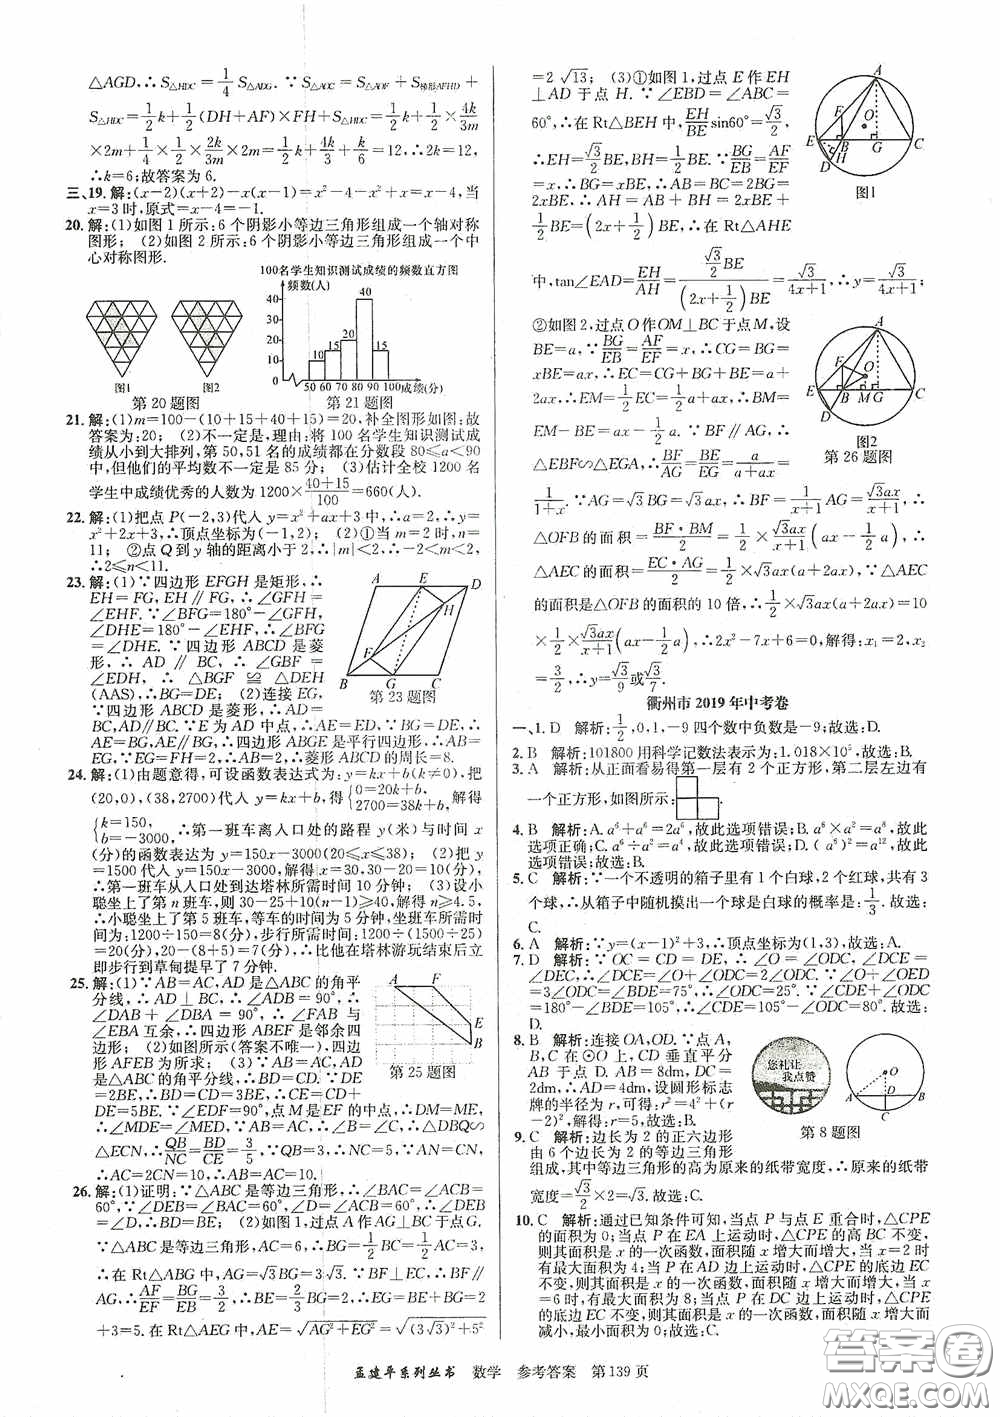 △AGD,∴S△HDC=1/4 S△ADG.∵S△AOC=S△AOF+S梯形AFHD+
S△HDC=1/2k+1/2(DH+AF)×FH+S△HDC=1/2k+1/2×4k/3m
×2m+1/4×1/2×2k/3m×2m=1/2k+4/3k+1/6k=12,∴2k=12,
∴k=6;故答案为6.
三、19.解:(x-2)(x+2)-x(x-1)=x²-4-x²+x=x-4,当
x=3时,原式=x-4=-1.
20.解:(1)如图1所示:6个阴影小等边三角形组成一个轴对称
图形; (2)如图2所示:6个阴影小等边三角形组成一个中
心对称图形.
100名学生知识测试成绩的频数直方图
频数(人)
40
30
20
10
10 15 20 40 15
50 60 70 80 90 100 成绩(分)
图1 图2
第20题图 第21题图
21.解:(1)m=100-(10+15+40+15)=20,补全图形如图;故
答案为:20; (2)不一定是,理由:将100名学生知识测试成
绩从小到大排列,第50,51名的成绩都在分数段80≤a<90
中,但他们的平均数不一定是85分; (3)估计全校1200名
学生中成绩优秀的人数为1200×(40+15)/100=660(人).
22.解:(1)把点P(-2,3)代入y=x²+ax+3中,∴a=2,∴y=
x²+2x+3;∴顶点坐标为(-1,2); (2)①当m=2时,n=
11; ②点Q到y轴的距离小于2,∴|m|<2,∴-2<m<2,
∴2≤n<11.
23.解:(1)∵四边形EFGH是矩形,∴
EH=FG,EH∥FG,∴∠GFH=
∠EHF.∵∠BFG=180°-∠GFH,
∠DHE=180°-∠EHF,∴∠BFG
=∠DHE.∵四边形ABCD是菱
形,∴AD∥BC,∴∠GBF=
∠EDH,∴△BGF≌△DEH
(AAS),∴BG=DE; (2)连接EG,
∵四边形ABCD是菱形,∴AD=
BC,AD∥BC.∵E为AD中点,∴AE=ED.∵BG=DE,∴
AE=BG,AE∥BG,∴四边形ABGE是平行四边形,∴AB=
EG.∵EG=FH=2,∴AB=2,∴菱形ABCD的周长=8.
A E D H F B G C
第23题图
24.解:(1)由题意得,可设函数表达式为:y=kx+b(k≠0),把
(20,0),(38,2700)代入y=kx+b,得{0=20k+b, 2700=38k+b,解得
{k=150, b=-3000,∴第一班车离入口处的路程y(米)与时间x
(分)的函数表达为y=150x-3000(20≤x≤38); (2)把y
=1500代入y=150x-3000,解得x=30,30-20=10(分),
∴第一班车从入口处到达塔林所需时间10分钟; (3)设小
聪坐上了第n班车,则30-25+10(n-1)≥40,解得n≥4.5,
∴小聪坐上了第5班车,等车的时间为5分钟,坐班车所需时
间为:1200÷150=8(分),步行所需时间:1200÷(1500÷25)
=20(分),20-(8+5)=7(分),∴比他在塔林游玩结束后立
即步行到草甸提早了7分钟.
25.解:(1)∵AB=AC,AD是△ABC的角平
分线,∴AD⊥BC,∴∠ADB=90°,∴
∠DAB+∠DBA=90°,∴∠FAB与
∠EBA互余,∴四边形ABEF是邻余四
边形; (2)如图所示(答案不唯一),四边
形AFEB为所求; (3)∵AB=AC,AD是
△ABC的角平分线,∴BD=CD.∵DE=
2BE,∴BD=CD=3BE,∴CE=CD+
DE=5BE.∵∠EDF=90°,点M是EF的中点,∴DM=ME,
∴∠MDE=∠MED.∵AB=AC,∴∠B=∠C,∴△DBQ∽
△ECN,∴QB/NC=BD/CE=3/5.∵QB=3,∴NC=5.∵AN=CN,
∴AC=2CN=10,∴AB=AC=10.
A F E B
第25题图
26.解:(1)证明:∵△ABC是等边三角形,∴∠BAC=∠ACB=
60°.∵∠DEB=∠BAC=60°,∠D=∠ACB=60°,∴∠DEB
=∠D,∴BD=BE; (2)如图1,过点A作AG⊥BC于点G.
∵△ABC是等边三角形,AC=6,∴BG=1/2BC=1/2AC=3,
∴在Rt△ABG中,AG=√3BG=3√3.∵BF⊥EC,∴BF∥
AG,∴AF/EF=BG/EB.∵AF:EF=3:2,∴BE=2/3BG=2,∴EG=BE+BG=2
+3=5.在Rt△AEG中,AE=√(AG²+EG²)=√((3√3)²+5²)
=2√13; (3)①如图1,过点E作EH
⊥AD于点H.∵∠EBD=∠ABC=
60°,∴在Rt△BEH中,EH/BE=sin60°=√3/2,
∴EH=√3/2BE,BH=1/2BE.∵BG/EB=AF/EF
=x,∴BG=xBE,∴AB=BC=2BG=
2xBE,∴AH=AB+BH=2xBE+
1/2BE=(2x+1/2)BE,∴在Rt△AHE
中,tan∠EAD=EH/AH=(√3/2 BE)/((2x+1/2)BE)=√3/(4x+1),∴y=√3/(4x+1);
A F O E B G C D H
图1
②如图2,过点O作OM⊥BC于点M,设
BE=a.∵BG/EB=AF/EF=x,∴CG=BG=
xBE=ax,∴EC=CG+BG+BE=a+
2ax,∴EM=1/2EC=1/2a+ax,∴BM=
EM-BE=ax-1/2a.∵BF∥AG,∴
△EBF∽△EGA,∴BF/AG=BE/EG=a/(a+ax)=
1/(1+x).∵AG=√3BG=√3ax,∴BF=1/(x+1)AG=√3ax/(x+1),∴
△OFB的面积=BF·BM/2=1/2×√3ax/(x+1)(ax-1/2a),∴
△AEC的面积=EC·AG/2=1/2×√3ax(a+2ax).∵△AEC
的面积是△OFB的面积的10倍,∴1/2×√3ax(a+2ax)=10
×1/2×√3ax/(x+1)(ax-1/2a),∴2x²-7x+6=0,解得:x₁=2,x₂
=3/2,∴y=√3/9或√3/7.
A F O E B M G C D
图2
第26题图
衢州市2019年中考卷
一、1. D 解析:1/2,0,1,-9四个数中负数是-9;故选:D.
2. B 解析:101800用科学记数法表示为:1.018×10⁵,故选:B.
3. A 解析:从正面看易得第一层有2个正方形,第二层左边有
一个正方形,如图所示:故选:A.
4. B 解析:A.a⁶+a⁶=2a⁶,故此选项错误;B.a⁶×a²=a⁸,故此
选项正确;C.a⁶÷a²=a⁴,故此选项错误;D.(a⁶)²=a¹²,故此
选项错误;故选:B.
5. C 解析:∵一个不透明的箱子里有1个白球,2个红球,共有3
个球,∴从箱子中随机摸出一个球是白球的概率是:1/3.故选:
C.
6. A 解析:∵y=(x-1)²+3,∴顶点坐标为(1,3),故选:A.
7. D 解析:∵OC=CD=DE,∴∠O=∠ODC,∠DCE=
∠DEC,∴∠DCE=∠O+∠ODC=2∠ODC.∵∠O+∠OED
=3∠ODC=∠BDE=75°,∴∠ODC=25°.∵∠CDE+
∠ODC=105°,∴∠CDE=105°-∠ODC=80°.故选:
D.
8. B 解析:连接OA,OD.∵点A,
B,C在⊙O上,CD垂直平分
AB于点D.AB=8dm,DC=
2dm,∴AD=4dm,设圆形标志
牌的半径为r,可得:r²=4²+(r
-2)²,解得:r=5,故选:B.
您礼让 我点赞
O A D B C
第8题图
9. C 解析:边长为2的正六边形由
6个边长为2的等边三角形
组成,其中等边三角形的高为原来的纸带宽度,∴原来的纸带
宽度=√3/2×2=√3.故选:C.
10. C 解析:通过已知条件可知,当点P与点E重合时,△CPE
的面积为0;当点P在EA上运动时,△CPE的高BC不变,
则其面积是x的一次函数,面积随x增大而增大,当x=2时
有最大面积4;当点P在AD边上运动时,△CPE的底边EC
不变,则其面积是x的一次函数,面积随x增大而增大,当x
=6时,有最大面积为8;当点P在DC边上运动时,△CPE
的底边EC不变,则其面积是x的一次函数,面积随x增大而
减小,最小面积为0;故选:C.
孟建平系列丛书 数学 参考答案 第139页
答案圈
MXQE.COM